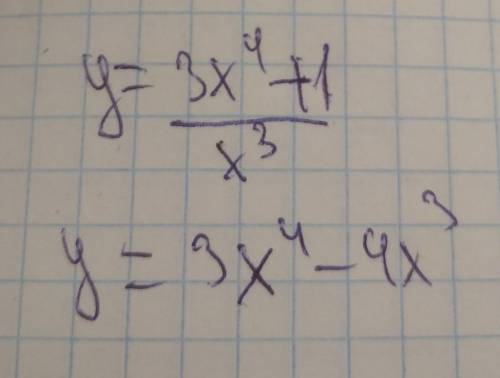 y = 3x⁴ + 1 / x³
y = 3x⁴ - 4x³